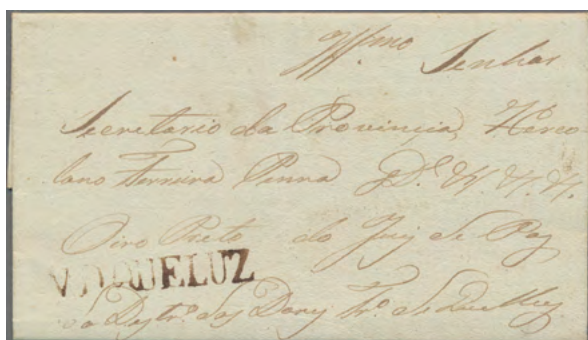 Illmo Senhor
Secretario da Provincia, Herco
lano Ferreira Penna GDe. &. &. &.
Oiro Preto do Juiz de Paz
V. DQUELUZ
do Destro. das